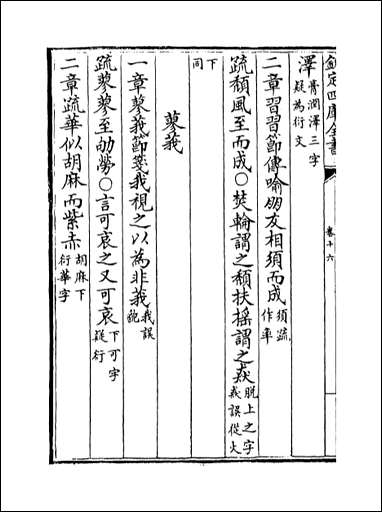 欽定四庫全書
卷十六
澤 膏潤澤三字
疑為衍文
二章習習節傳喻朋友相須而成 須疏
作率
疏頹風至而成〇焚輪謂之頹扶搖謂之猋 脫上之字
猋誤從火
下
同
蓼莪
一章蓼莪節箋我視之以為非莪 我誤
貌
疏蓼蓼至劬勞〇言可哀之又可哀 下可字
疑衍
二章疏華似胡麻而紫赤 胡麻下
衍華字